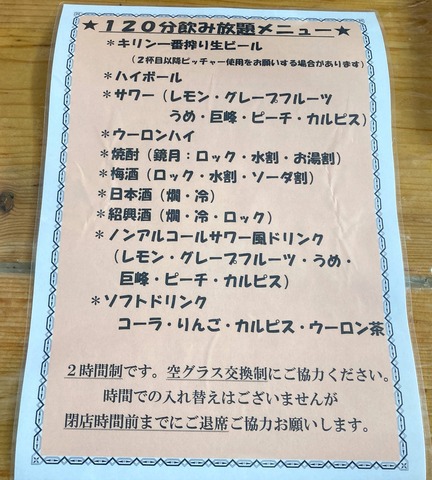 ★１２０分飲み放題メニュー★
＊キリン一番搾り生ビール
（２杯目以降ピッチャー使用をお願いする場合があります）
＊ハイボール
＊サワー（レモン・グレープフルーツ
うめ・巨峰・ピーチ・カルピス）
＊ウーロンハイ
＊焼酎（鏡月：ロック・水割・お湯割）
＊梅酒（ロック・水割・ソーダ割）
＊日本酒（燗・冷）
＊紹興酒（燗・冷・ロック）
＊ノンアルコールサワー風ドリンク
（レモン・グレープフルーツ・うめ・
巨峰・ピーチ・カルピス）
＊ソフトドリンク
コーラ・りんご・カルピス・ウーロン茶
２時間制です。空グラス交換制にご協力ください。
時間での入れ替えはございませんが
閉店時間前までにご退席ご協力お願いします。